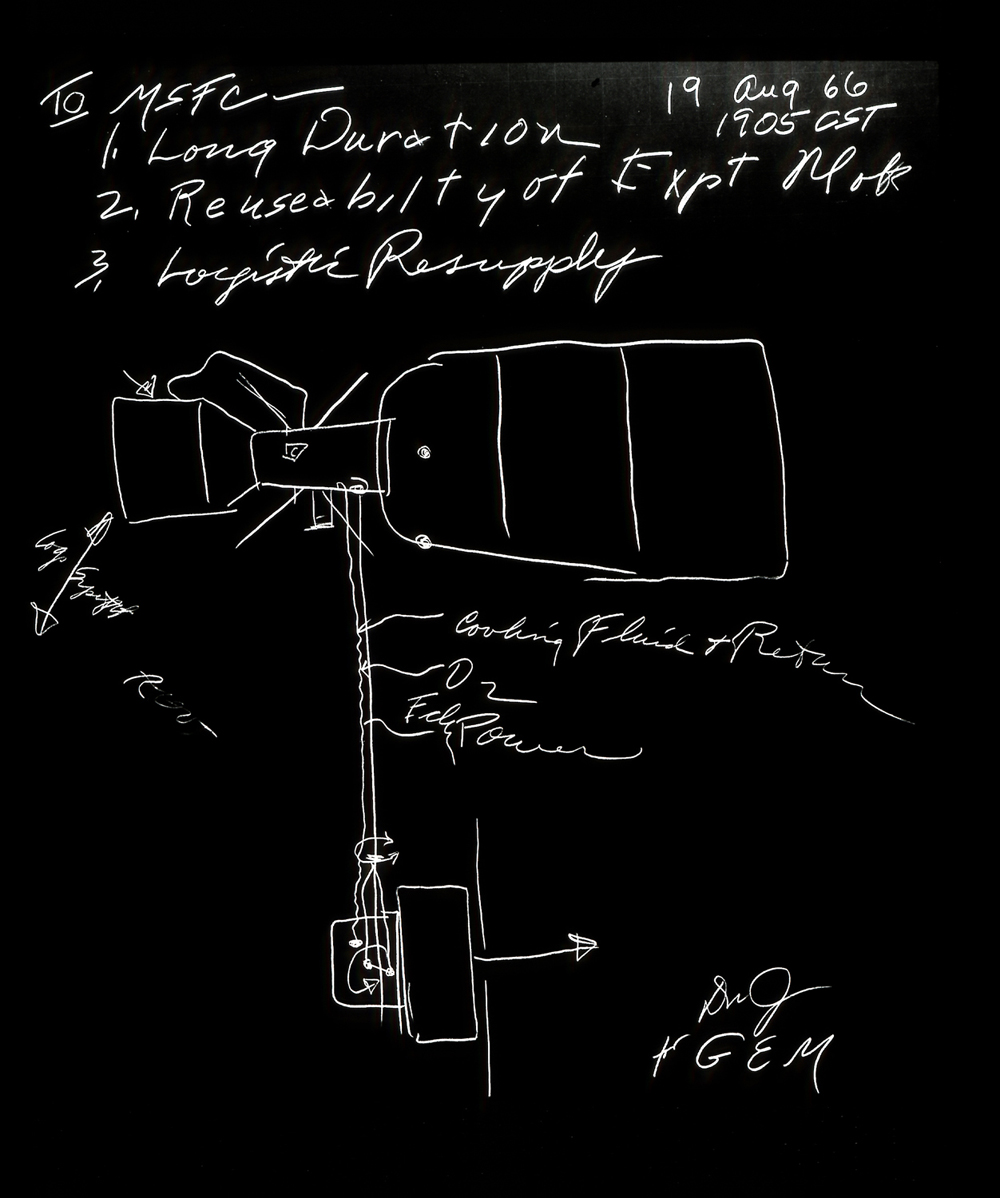 To MSFC
19 Aug 66
1905 CST
1. Long Duration
2. Reuseabilty of Expt
3. Logistic Resupply
Log.
Cooling Fluid & Return
O2
Power
GEM